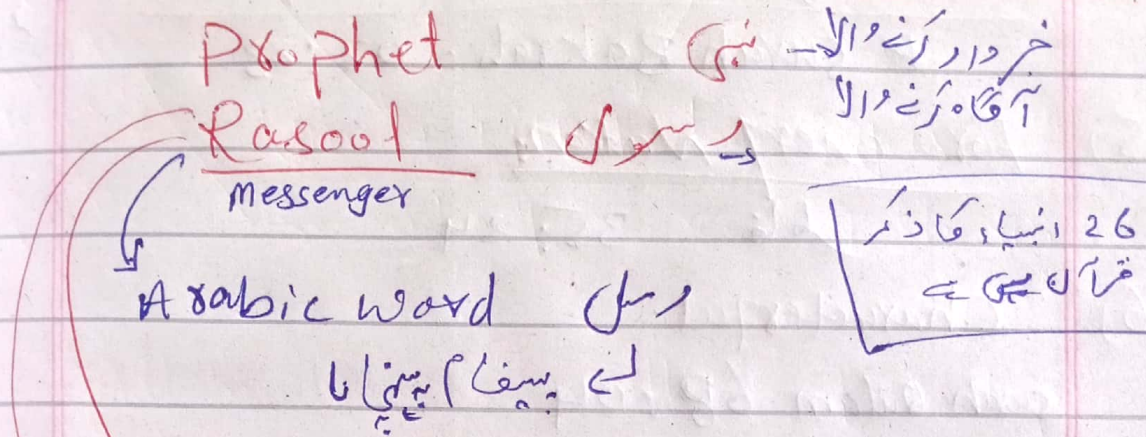 Prophet نبی خبردار کرنے والا
آگاہ کرنے والا
Rasool رسول
Messenger
26 انبیاء کا ذکر
قرآن میں ہے
Arabic word رسل
لے پیغام پہنچانا